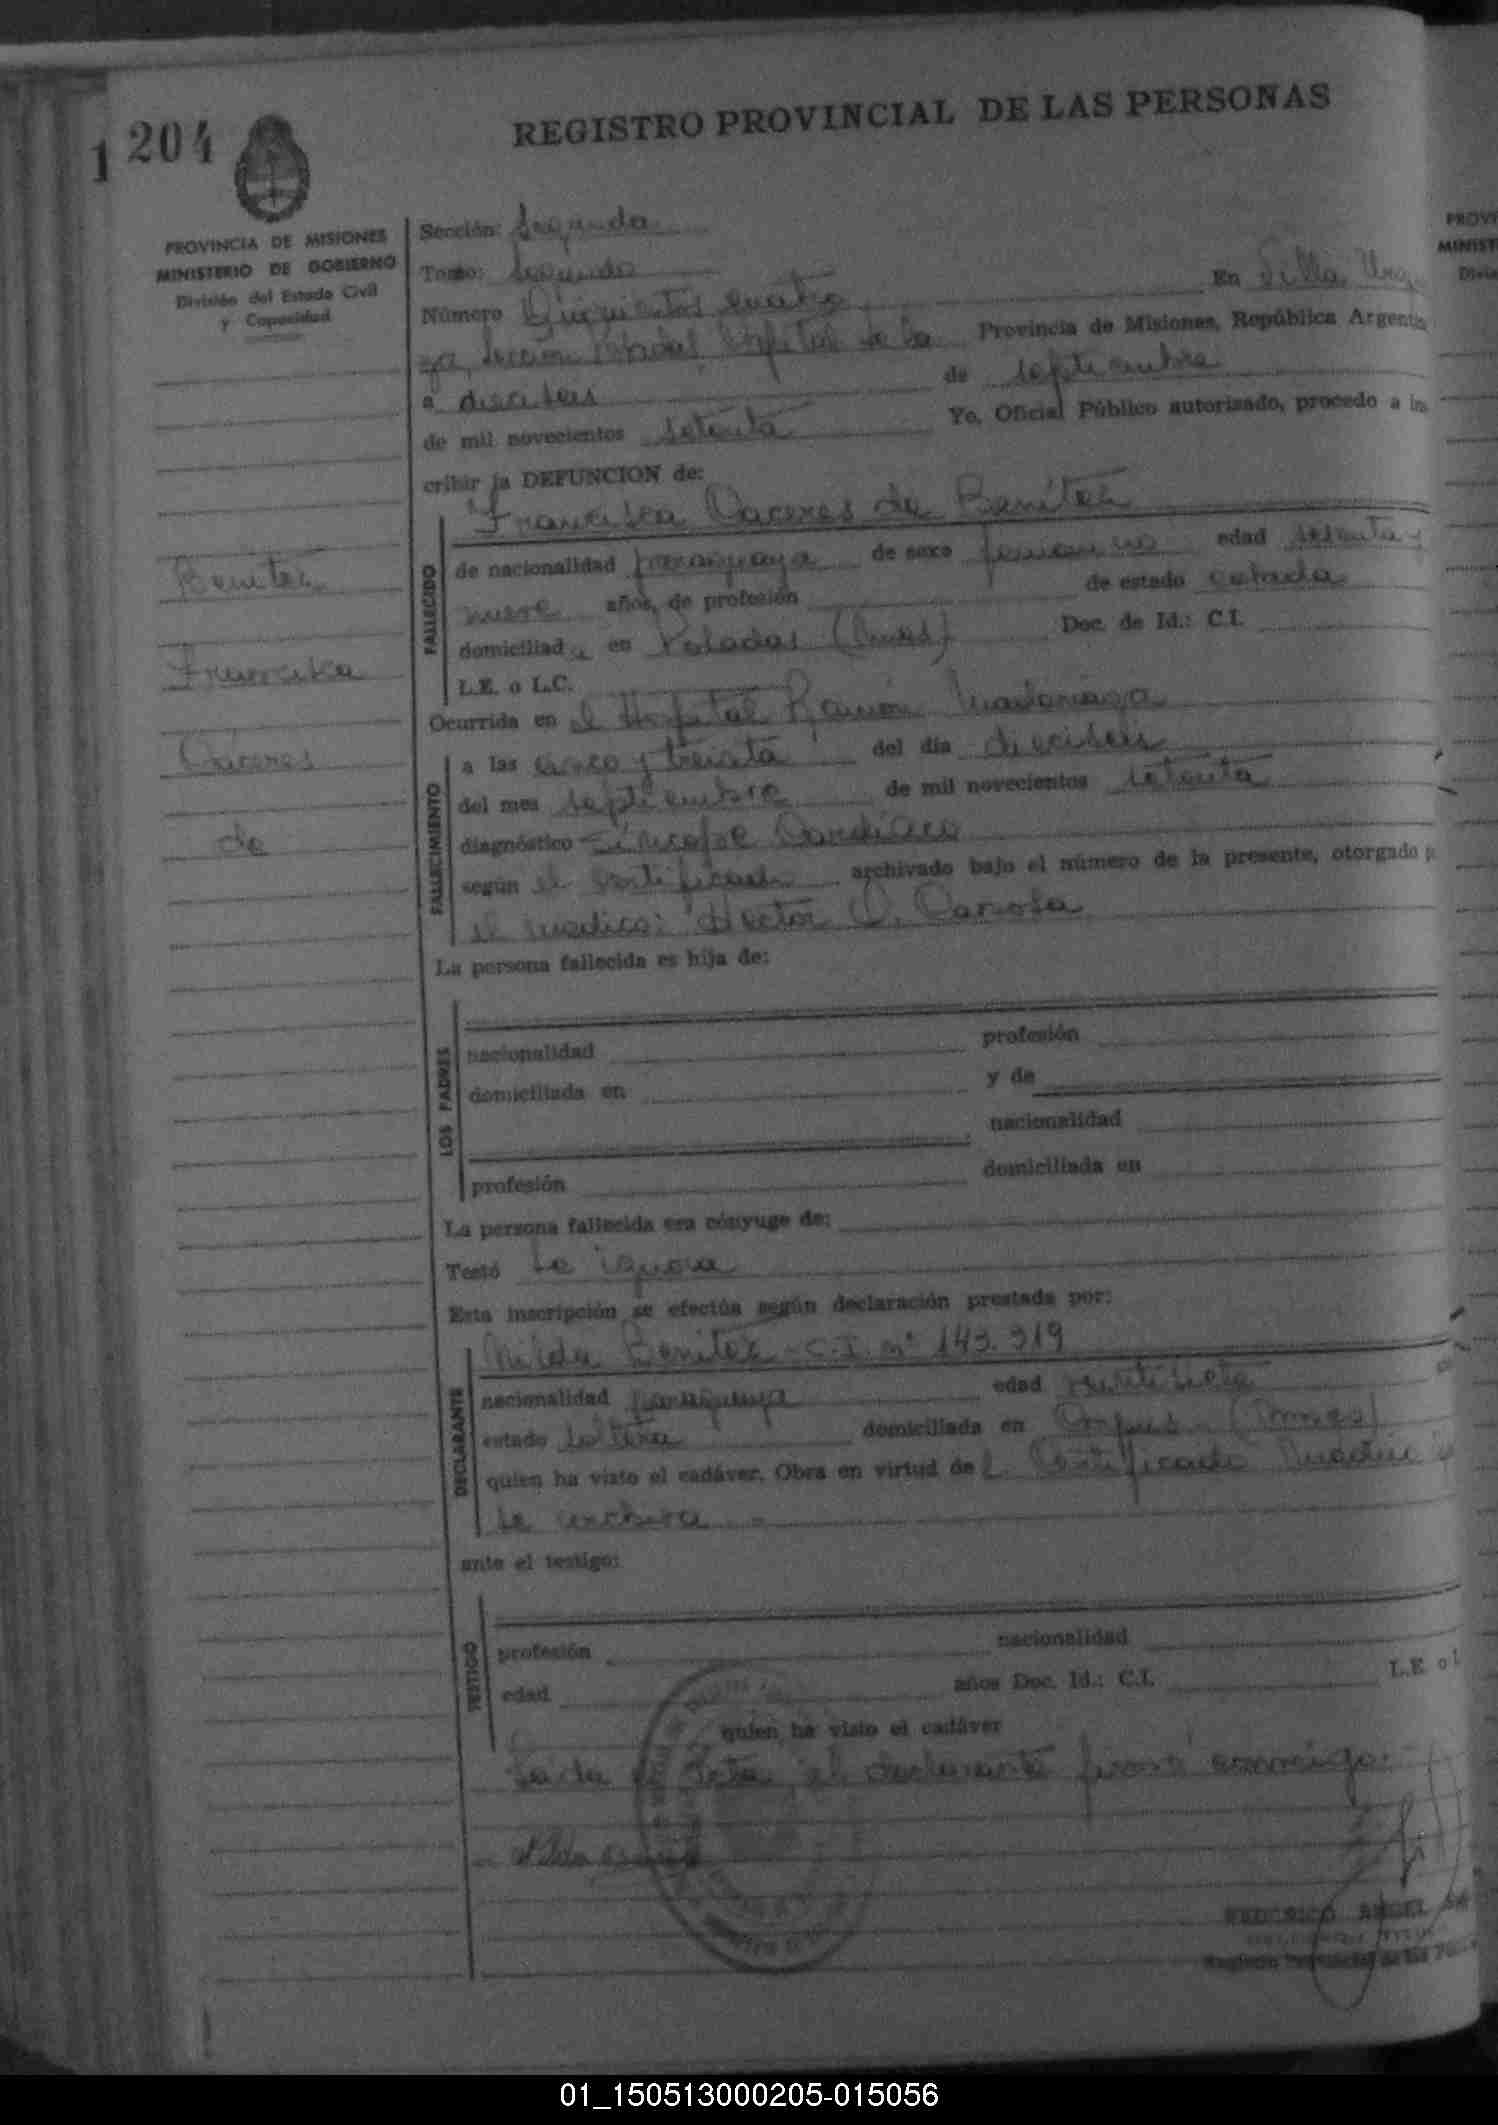 1 204
REGISTRO PROVINCIAL DE LAS PERSONAS
PROVINCIA DE MISIONES
MINISTERIO DE GOBIERNO
División del Estado Civil
y Capacidad
Benitez
Francisca
Caceres
de
Sección: Segunda
Tomo: Segundo
Número Quinientos cuatro En Villa Urq
za, Sección Hospital de la Provincia de Misiones, República Argentin
a dieciseis de septiembre
de mil novecientos setenta Yo, Oficial Público autorizado, procedo a ins
cribir la DEFUNCION de:
Francisca Caceres de Benitez
FALLECIDO
de nacionalidad paraguaya de sexo femenino edad setenta y
nueve años, de profesión de estado casada
domiciliada en Posadas (Mnes) Doc. de Id.: C.I.
L.E. o L.C.
Ocurrida en el Hospital Ramón Madariaga
FALLECIMIENTO
a las cinco y treinta del día dieciseis
del mes septiembre de mil novecientos setenta
diagnóstico Síncope Cardíaco
según el certificado archivado bajo el número de la presente, otorgado p
el medico: Hector
La persona fallecida es hija de:
LOS PADRES
nacionalidad profesión
domiciliada en y de
nacionalidad
profesión domiciliada en
La persona fallecida era cónyuge de:
Testó Se ignora
Esta inscripción se efectúa según declaración prestada por:
Nilda Benitez - C.I. nº 143.319
DECLARANTE
nacionalidad paraguaya edad veintisiete
estado soltera domiciliada en Corpus - (Mnes)
quien ha visto el cadáver. Obra en virtud del Certificado Medico q
se archiva -
ante el testigo:
TESTIGO
profesión nacionalidad
edad años Doc. Id.: C.I. L.E. o L
quien ha visto el cadáver
Leida el Acta, el declarante firmó conmigo.-
FEDERICO ANGEL
Registro Provincial de las
PROVI
MINIST
Divis
01_150513000205-015056